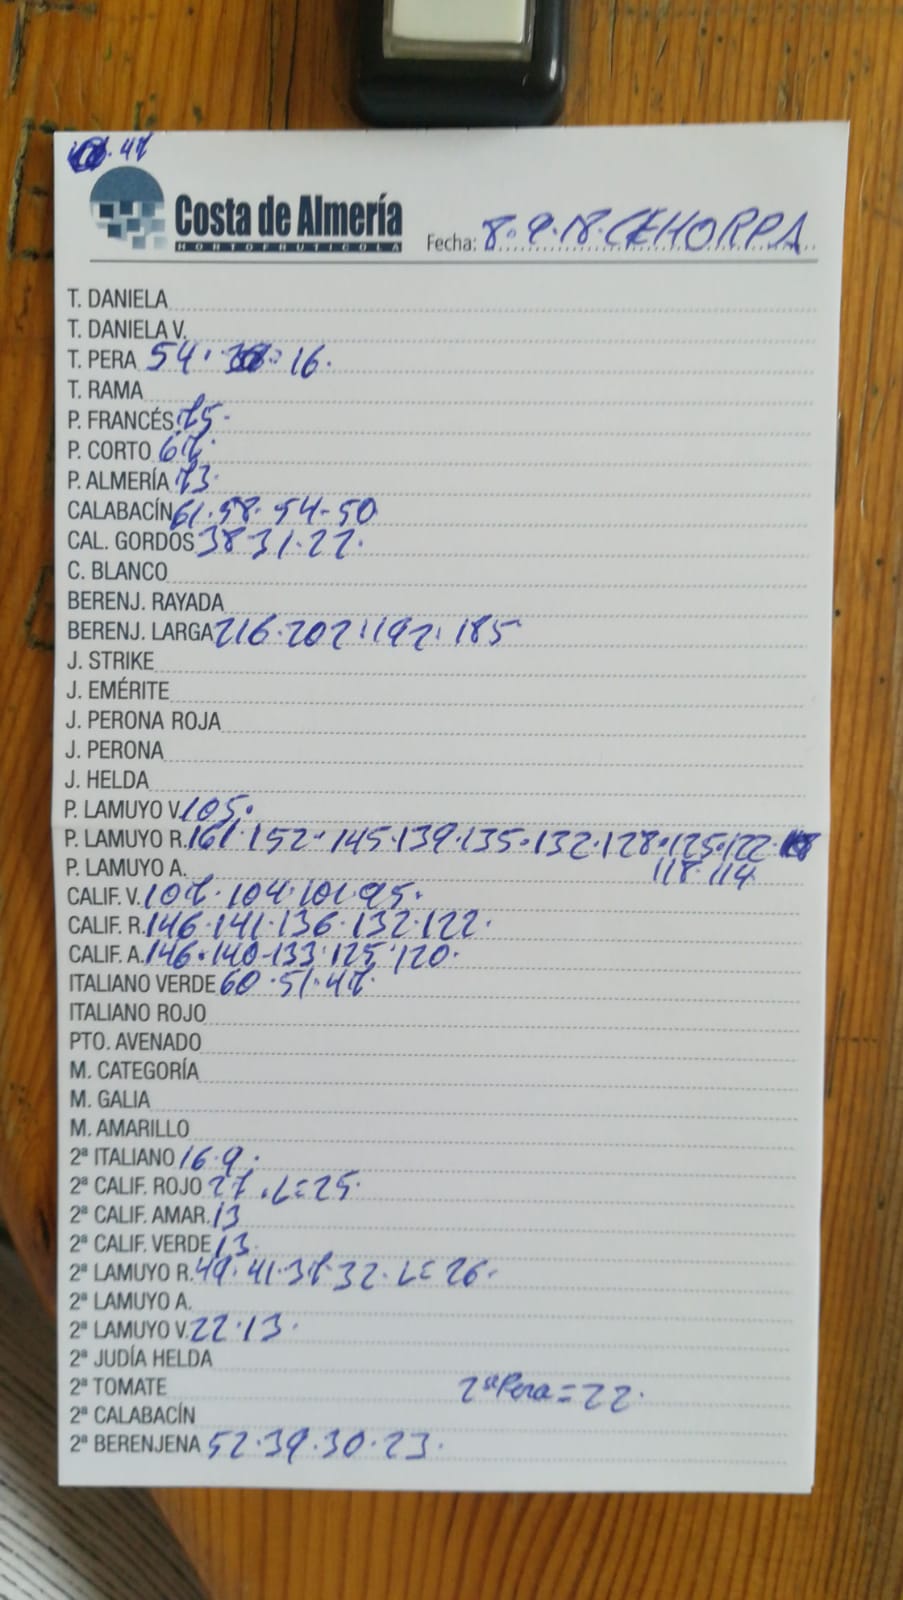 47
Costa de Almería
HORTOFRUTICOLA
Fecha: 8.9.18. CEHORPA
T. DANIELA
T. DANIELA V.
T. PERA 54. 16.
T. RAMA
P. FRANCÉS 75.
P. CORTO 67.
P. ALMERÍA 73.
CALABACÍN 61.58.54-50
CAL. GORDOS 38 31.22.
C. BLANCO
BERENJ. RAYADA
BERENJ. LARGA 216.202.192.185
J. STRIKE
J. EMÉRITE
J. PERONA ROJA
J. PERONA
J. HELDA
P. LAMUYO V. 105.
P. LAMUYO R. 161.152.145.139.135.132.128.125.122.
118.114
P. LAMUYO A.
CALIF. V. 107.104.101.95.
CALIF. R. 146.141.136.132.122.
CALIF. A. 146.140-133.125.120.
ITALIANO VERDE 60.51.47.
ITALIANO ROJO
PTO. AVENADO
M. CATEGORÍA
M. GALIA
M. AMARILLO
2ª ITALIANO 16.9.
2ª CALIF. ROJO 27. L=25.
2ª CALIF. AMAR. 13
2ª CALIF. VERDE 13.
2ª LAMUYO R. 49.41.37.32. L=26.
2ª LAMUYO A.
2ª LAMUYO V. 22.13.
2ª JUDÍA HELDA
2ª TOMATE 2ª Pera=22.
2ª CALABACÍN
2ª BERENJENA 52.39.30.23.